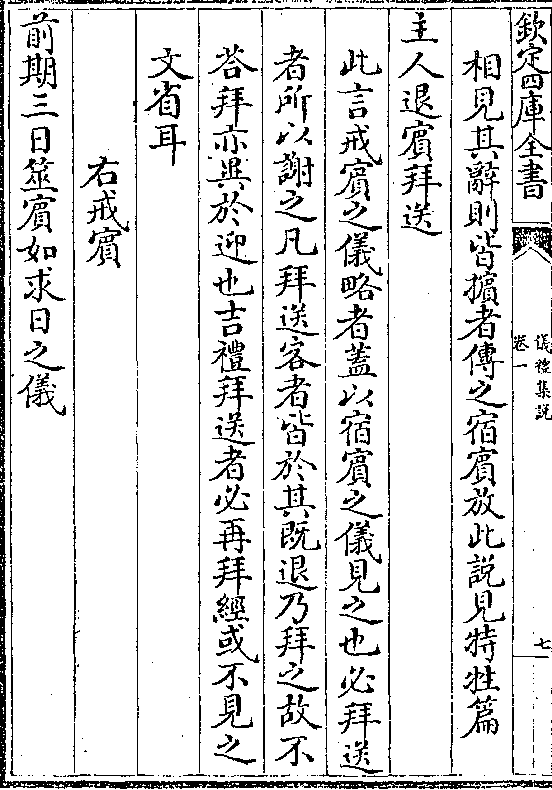 欽定四庫全書
儀禮集説
卷一
七
相見其辭則皆擯者傳之宿賓放此説見特牲篇
主人退賓拜送
此言戒賓之儀略者蓋以宿賓之儀見之也必拜送
者所以謝之凡拜送客者皆於其既退乃拜之故不
荅拜亦異於迎也吉禮拜送者必再拜經或不見之
文省耳
右戒賓
前期三日筮賓如求日之儀